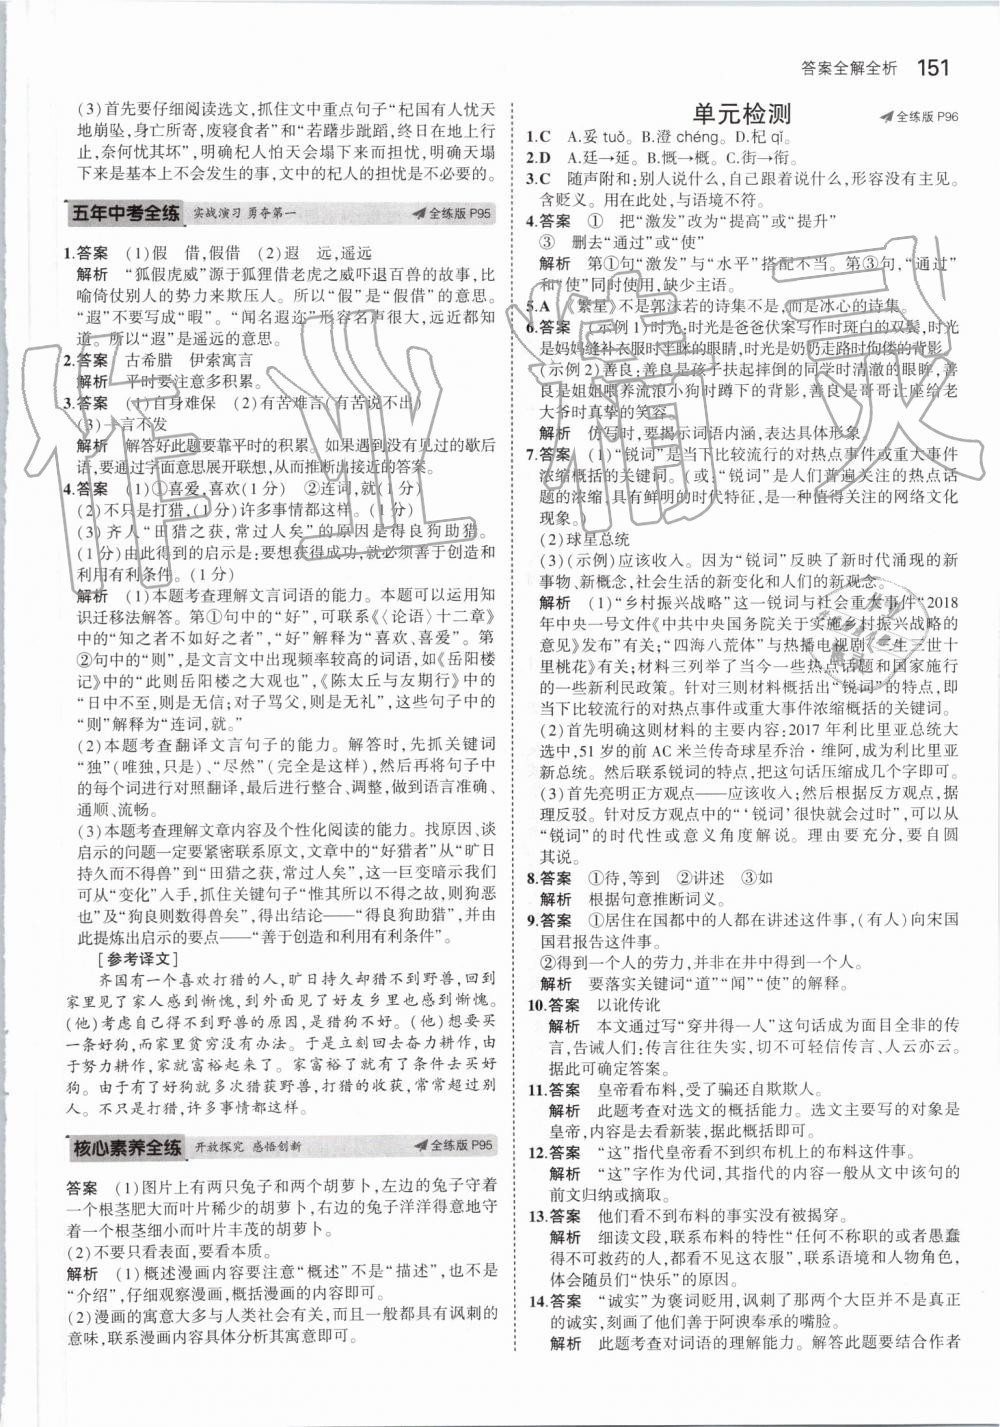 答案全解全析 151
(3)首先要仔细阅读选文,抓住文中重点句子“杞国有人忧天
地崩坠,身亡所寄,废寝食者”和“若躇步跐蹈,终日在地上行
止,奈何忧其坏”,明确杞人怕天塌下来而担忧,明确天塌
下来是基本上不会发生的事,文中的杞人的担忧是不必要的。
五年中考全练 实战演习 勇夺第一 全练版 P95
1.答案 (1)假 借,假借 (2)遐 远,遥远
解析 “狐假虎威”源于狐狸借老虎之威吓退百兽的故事,比
喻倚仗别人的势力来欺压人。所以“假”是“假借”的意思。
“遐”不要写成“暇”。“闻名遐迩”形容名声很大,远近都知
道。所以“遐”是遥远的意思。
2.答案 古希腊 伊索寓言
解析 平时要注意多积累。
3.答案 (1)自身难保 (2)有苦难言(有苦说不出)
(3)一言不发
解析 解答好此题要靠平时的积累。如果遇到没有见过的歇后
语,要通过字面意思展开联想,从而推断出接近的答案。
4.答案 (1)①喜爱,喜欢(1分) ②连词,就(1分)
(2)不只是打猎,(1分)许多事情都这样。(1分)
(3)齐人“田猎之获,常过人矣”的原因是得良狗助猎。
(1分)由此得到的启示是:要想获得成功,就必须善于创造和
利用有利条件。(1分)
解析 (1)本题考查理解文言词语的能力。本题可以运用知
识迁移法解答。第①句中的“好”,可联系《〈论语〉十二章》
中的“知之者不如好之者”,“好”解释为“喜欢、喜爱”。第
②句中的“则”,是文言文中出现频率较高的词语,如《岳阳楼
记》中的“此则岳阳楼之大观也”,《陈太丘与友期行》中的
“日中不至,则是无信;对子骂父,则是无礼”,这些句子中的
“则”解释为“连词,就。”
(2)本题考查翻译文言句子的能力。解答时,先抓关键词
“独”(唯独,只是)、“尽然”(完全是这样),然后再将句子中
的每个词进行对照翻译,最后进行整合、调整,做到语言准确、
通顺、流畅。
(3)本题考查理解文章内容及个性化阅读的能力。找原因、谈
启示的问题一定要紧密联系原文,文章中的“好猎者”从“旷日
持久而不得兽”到“田猎之获,常过人矣”,这一巨变暗示我们
可从“变化”入手,抓住关键句子“惟其所以不得之故,则狗恶
也”及“狗良则数得兽矣”,得出结论——“得良狗助猎”,并由
此提炼出启示的要点——“善于创造和利用有利条件”。
[参考译文]
齐国有一个喜欢打猎的人,旷日持久却猎不到野兽,回到
家里见了家人感到惭愧,到外面见了好友乡里也感到惭愧。
(他)考虑自己得不到野兽的原因,是猎狗不好。(他)想要买
一条好狗,而家里贫穷没有办法。于是立刻回去奋力耕作,由
于努力耕作,家就富裕起来了。家富裕了就有了条件去买好
狗。由于有了好狗就多次猎获野兽,打猎的收获,常常超过别
人。不只是打猎,许多事情都这样。
核心素养全练 开放探究 感悟创新 全练版 P95
答案 (1)图片上有两只兔子和两个胡萝卜,左边的兔子守着
一个根茎肥大而叶片稀少的胡萝卜,右边的兔子洋洋得意地守
着一个根茎细小而叶片丰茂的胡萝卜。
(2)不要只看表面,要看本质。
解析 (1)概述漫画内容要注意“概述”不是“描述”,也不是
“介绍”,仔细观察漫画,概括漫画的内容即可。
(2)漫画的寓意大多与人类社会有关,而且一般都具有讽刺的
意味,联系漫画内容具体分析其寓意即可。
单元检测 全练版 P96
1.C A.妥 tuǒ。B.澄 chéng。D.杞 qǐ。
2.D A.廷→延。B.慨→概。C.街→衔。
3.C 随声附和:别人说什么,自己跟着说什么,形容没有主见。
含贬义。用在此处,与语境不符。
4.答案 ① 把“激发”改为“提高”或“提升”
③ 删去“通过”或“使”
解析 第①句“激发”与“水平”搭配不当。第③句,“通过”
和“使”同时使用,缺少主语。
5.A 《繁星》不是郭沫若的诗集不是,而是冰心的诗集。
6.答案 (示例1)时光:时光是爸爸伏案写作时斑白的双鬓,时光
是妈妈缝补衣服时半眯的眼睛,时光是奶奶走路时佝偻的背影。
(示例2)善良:善良是孩子扶起摔倒的同学时清澈的眼眸,善
良是姐姐喂养流浪小狗时蹲下的背影,善良是哥哥让座给老
大爷时真挚的笑容。
解析 仿写时,要揭示词语内涵,表达具体形象。
7.答案 (1)“锐词”是当下比较流行的对热点事件或重大事件
浓缩概括的关键词。(或:“锐词”是人们普遍关注的热点话
题的浓缩,具有鲜明的时代特征,是一种值得关注的网络文化
现象。)
(2)球星总统
(3)(示例)应该收入。因为“锐词”反映了新时代涌现的新
事物、新思想、社会生活的新变化和人们的新观念。
解析 (1)“乡村振兴战略”这一锐词与社会重大事件“2018
年中央一号文件《中共中央国务院关于实施乡村振兴战略的
意见》发布”有关;“四海八荒体”与热播电视剧《三生三世十
里桃花》有关;材料三列举了当今一些热点话题和国家施行
的一些新利民政策。针对三则材料概括出“锐词”的特点,即
当下比较流行的对热点事件或重大事件浓缩概括的关键词。
(2)首先明确这则材料的主要内容:2017年利比里亚总统大
选中,51岁的前AC米兰传奇球星乔治·维阿,成为利比里亚
新总统。然后联系锐词的特点,把这句话压缩成几个字即可。
(3)首先亮明正方观点——应该收入;然后根据反方观点,据
理反驳。针对反方观点中的“‘锐词’很快就会过时”,可以从
“锐词”的时代性或意义角度解说。理由要充分,要自圆
其说。
8.答案 ①待,等到 ②讲述 ③如
解析 根据句意推断词义。
9.答案 ①居住在国都中的人都在讲述这件事,(有人)向宋国
国君报告这件事。
②得到一个人的劳力,并非在井中得到一个人。
解析 要落实关键词“道”“闻”“使”的解释。
10.答案 以讹传讹
解析 本文通过写“穿井得一人”这句话成为面目全非的传
言,告诫人们:传言往往失实,切不可轻信传言、人云亦云。
据此可确定答案。
11.答案 皇帝看布料,受了骗还自欺欺人。
解析 此题考查对选文的概括能力。选文主要写的对象是
皇帝,内容是去看新装,据此概括即可。
12.答案 “这”指代皇帝看不到织布机上的布料这件事。
解析 “这”字作为代词,其指代的内容一般从文中该句的
前文归纳或摘取。
13.答案 他们看不到布料的事实没有被揭穿。
解析 细读文段,联系布料的特性“任何不称职的或者愚蠢
得不可救药的人,都看不见这衣服”,联系语境和人物角色,
体会随员们“快乐”的原因。
14.答案 “诚实”为褒词贬用,讽刺了那两个大臣并不是真正
的诚实,刻画了他们善于阿谀奉承的嘴脸。
解析 此题考查对词语的理解能力。解答此题要结合作者
作业精灵